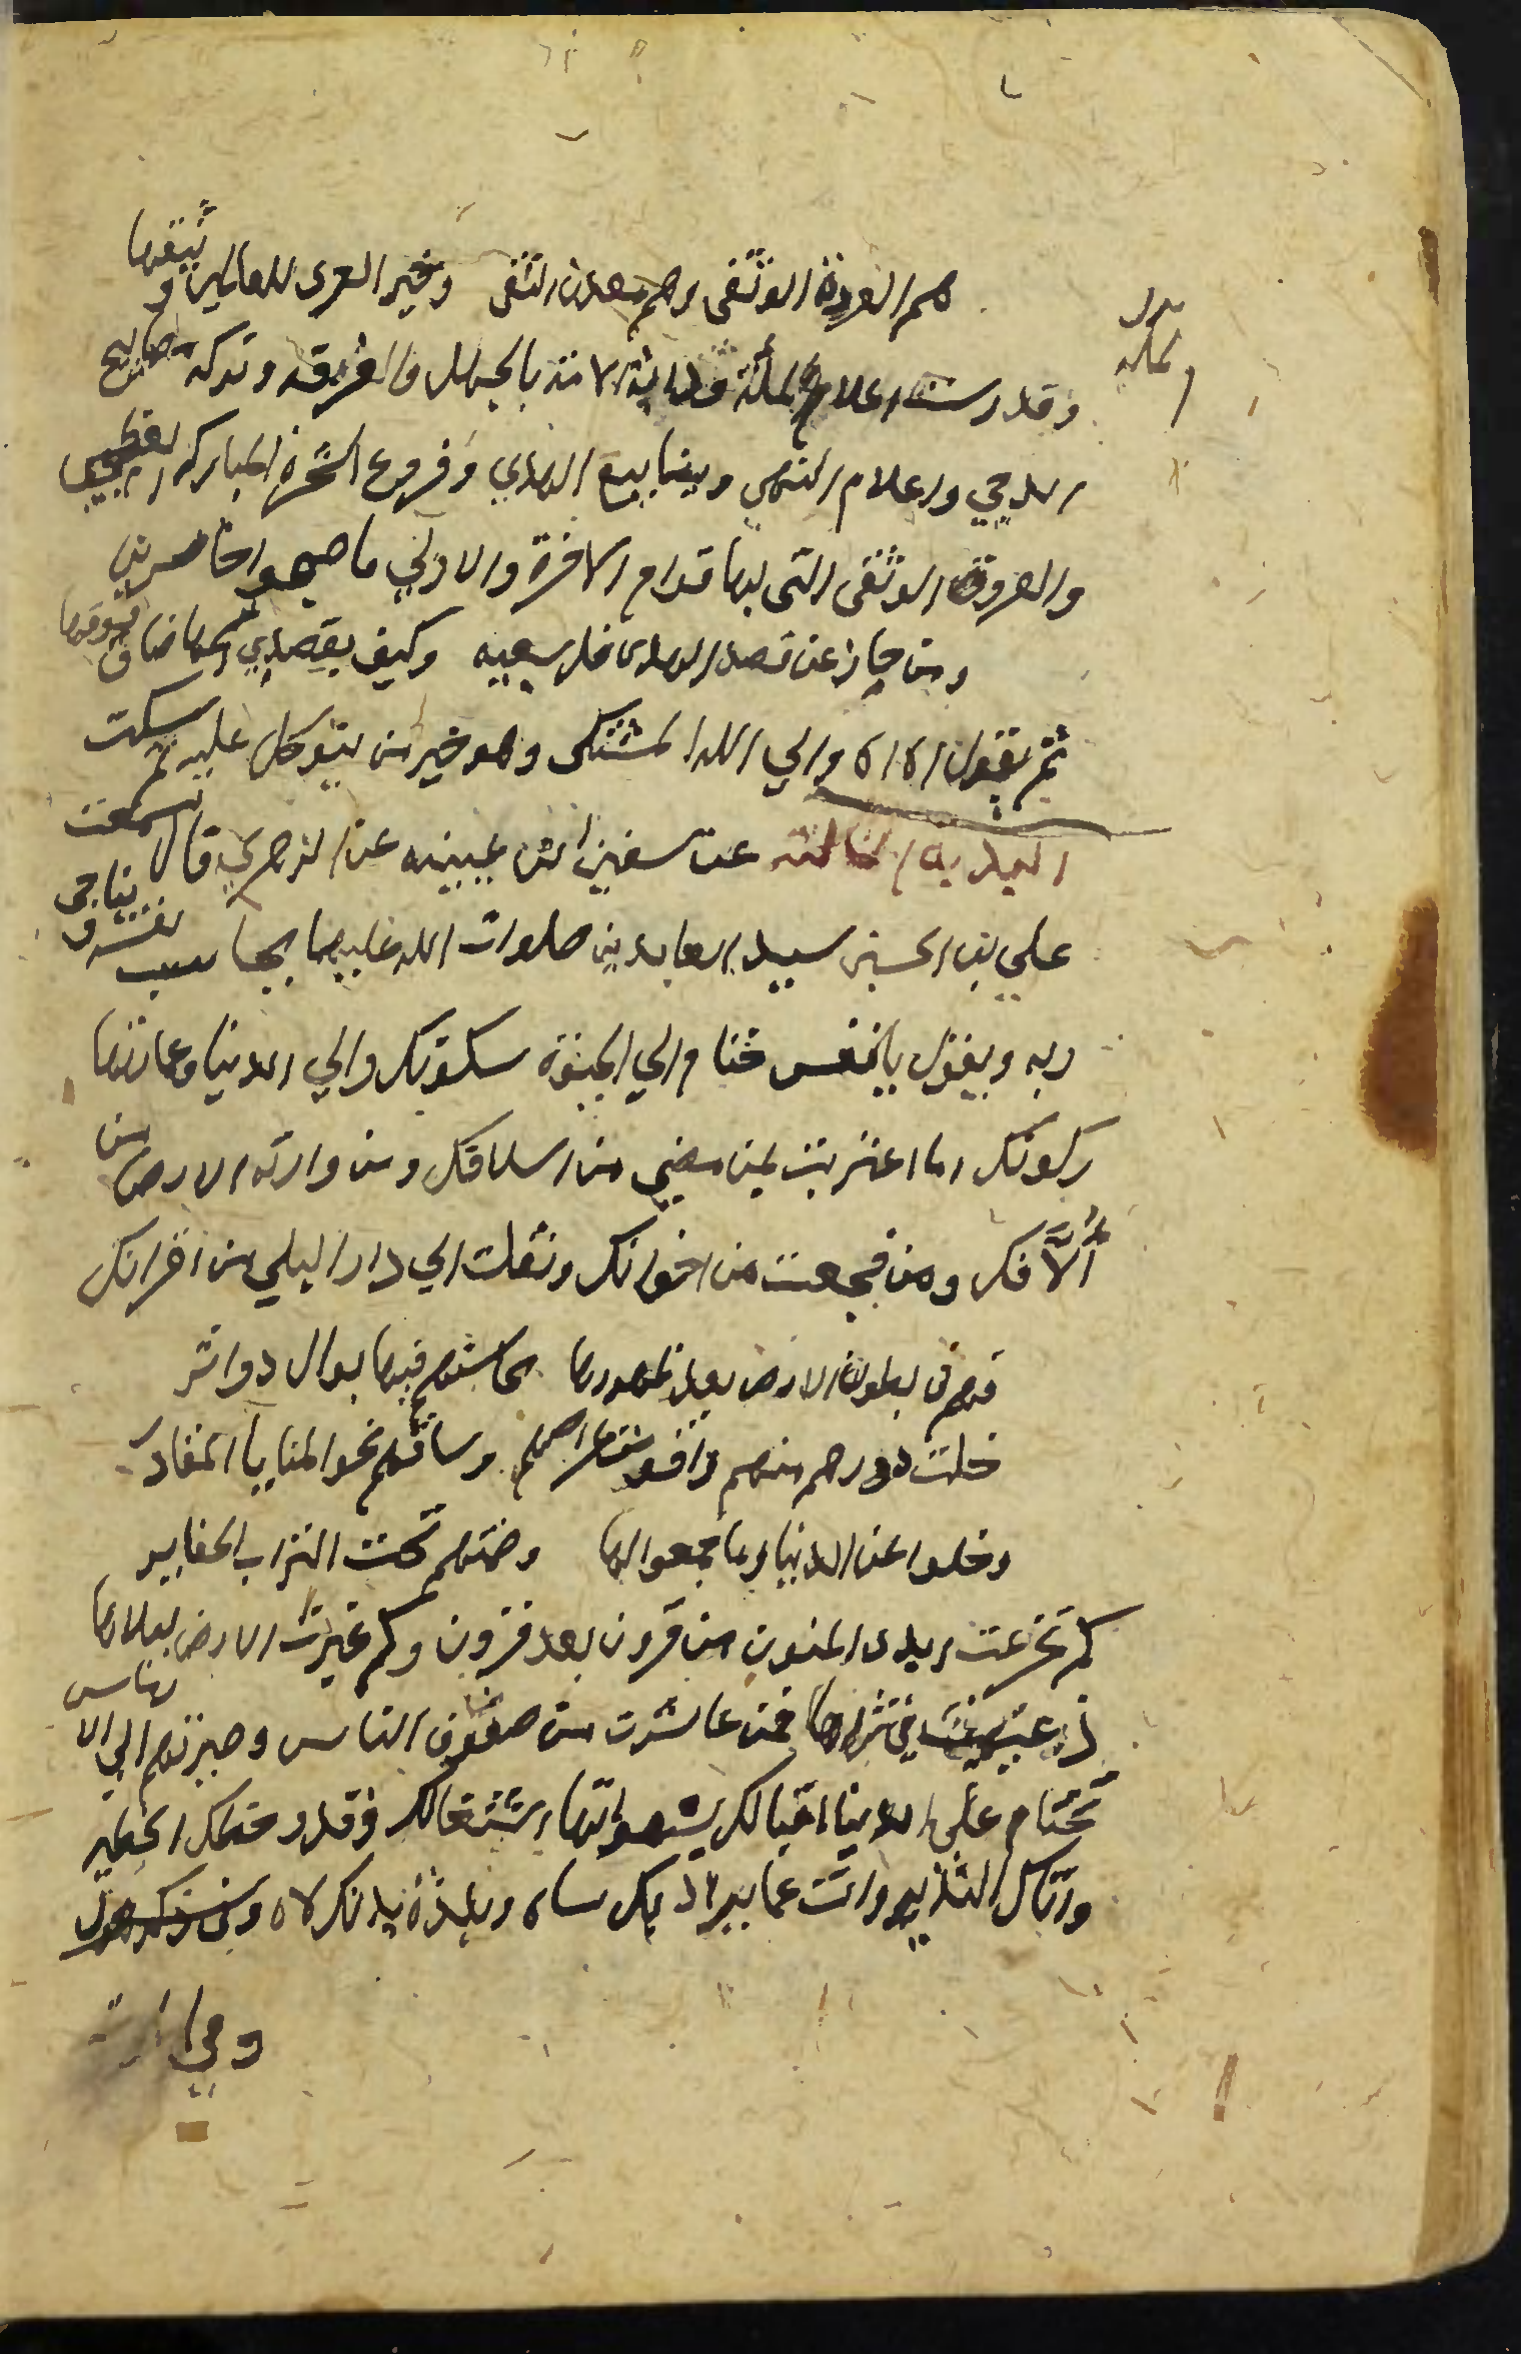 هم العروة الوثقى وهم معدن التقى وخير العرى للعالمين وثيقها
وقد درست اعلام الملة الامة بالجهل والفرقة وتركه مصابيح
الدجي واعلام التقى وينابيع الهدي وفروع الشجرة المباركة
والعروة الوثقى التي بها قوام الاخرة والاولي ما صبحوا خاسرين
ومن جاز عن قصد الهدى فلا سعيه وكيف يقصدي
ثم يقول اه اه والي الله المشتكى وهو خير من يتوكل عليه ثم سكت
الندبة الثالثة عن سفين ابن عيينه عن الزهري قال سمعت
علي بن الحسين سيد العابدين صلوات الله عليهما يحاسب نفسه و يناجي
ربه ويقول يا نفس حتام الي الحيوة سكونك والي الدنيا وعمارتها
ركونك اما اعتبرت بمن مضي من اسلافك ومن وارته الارض من
أُلَّافك ومن فجعت من اخوانك ونقلت الي دار البلي من اقرانك
فهم في بطون الارض بعد ظهورها محاسنهم فيها بوال دواثر
خلت دورهم منهم واقوت عراصهم وساقتهم نحو المنايا المقادر
وخلوا عن الدنيا وما جمعوا لها وضمتهم تحت التراب الحفاير
كم تخرمت ايدى المنون من قرون بعد قرون وكم غيرت الارض ببلاها
في ثراها ممن عاشرت من صنوف الناس وصيرتهم الي الا رماس
حتام علي الدنيا اقبالك بشهواتها اشتغالك وقد وخطك القتير
واتاك النذير وانت عما يراد بك ساه وبلذة يومك لاه
وفي